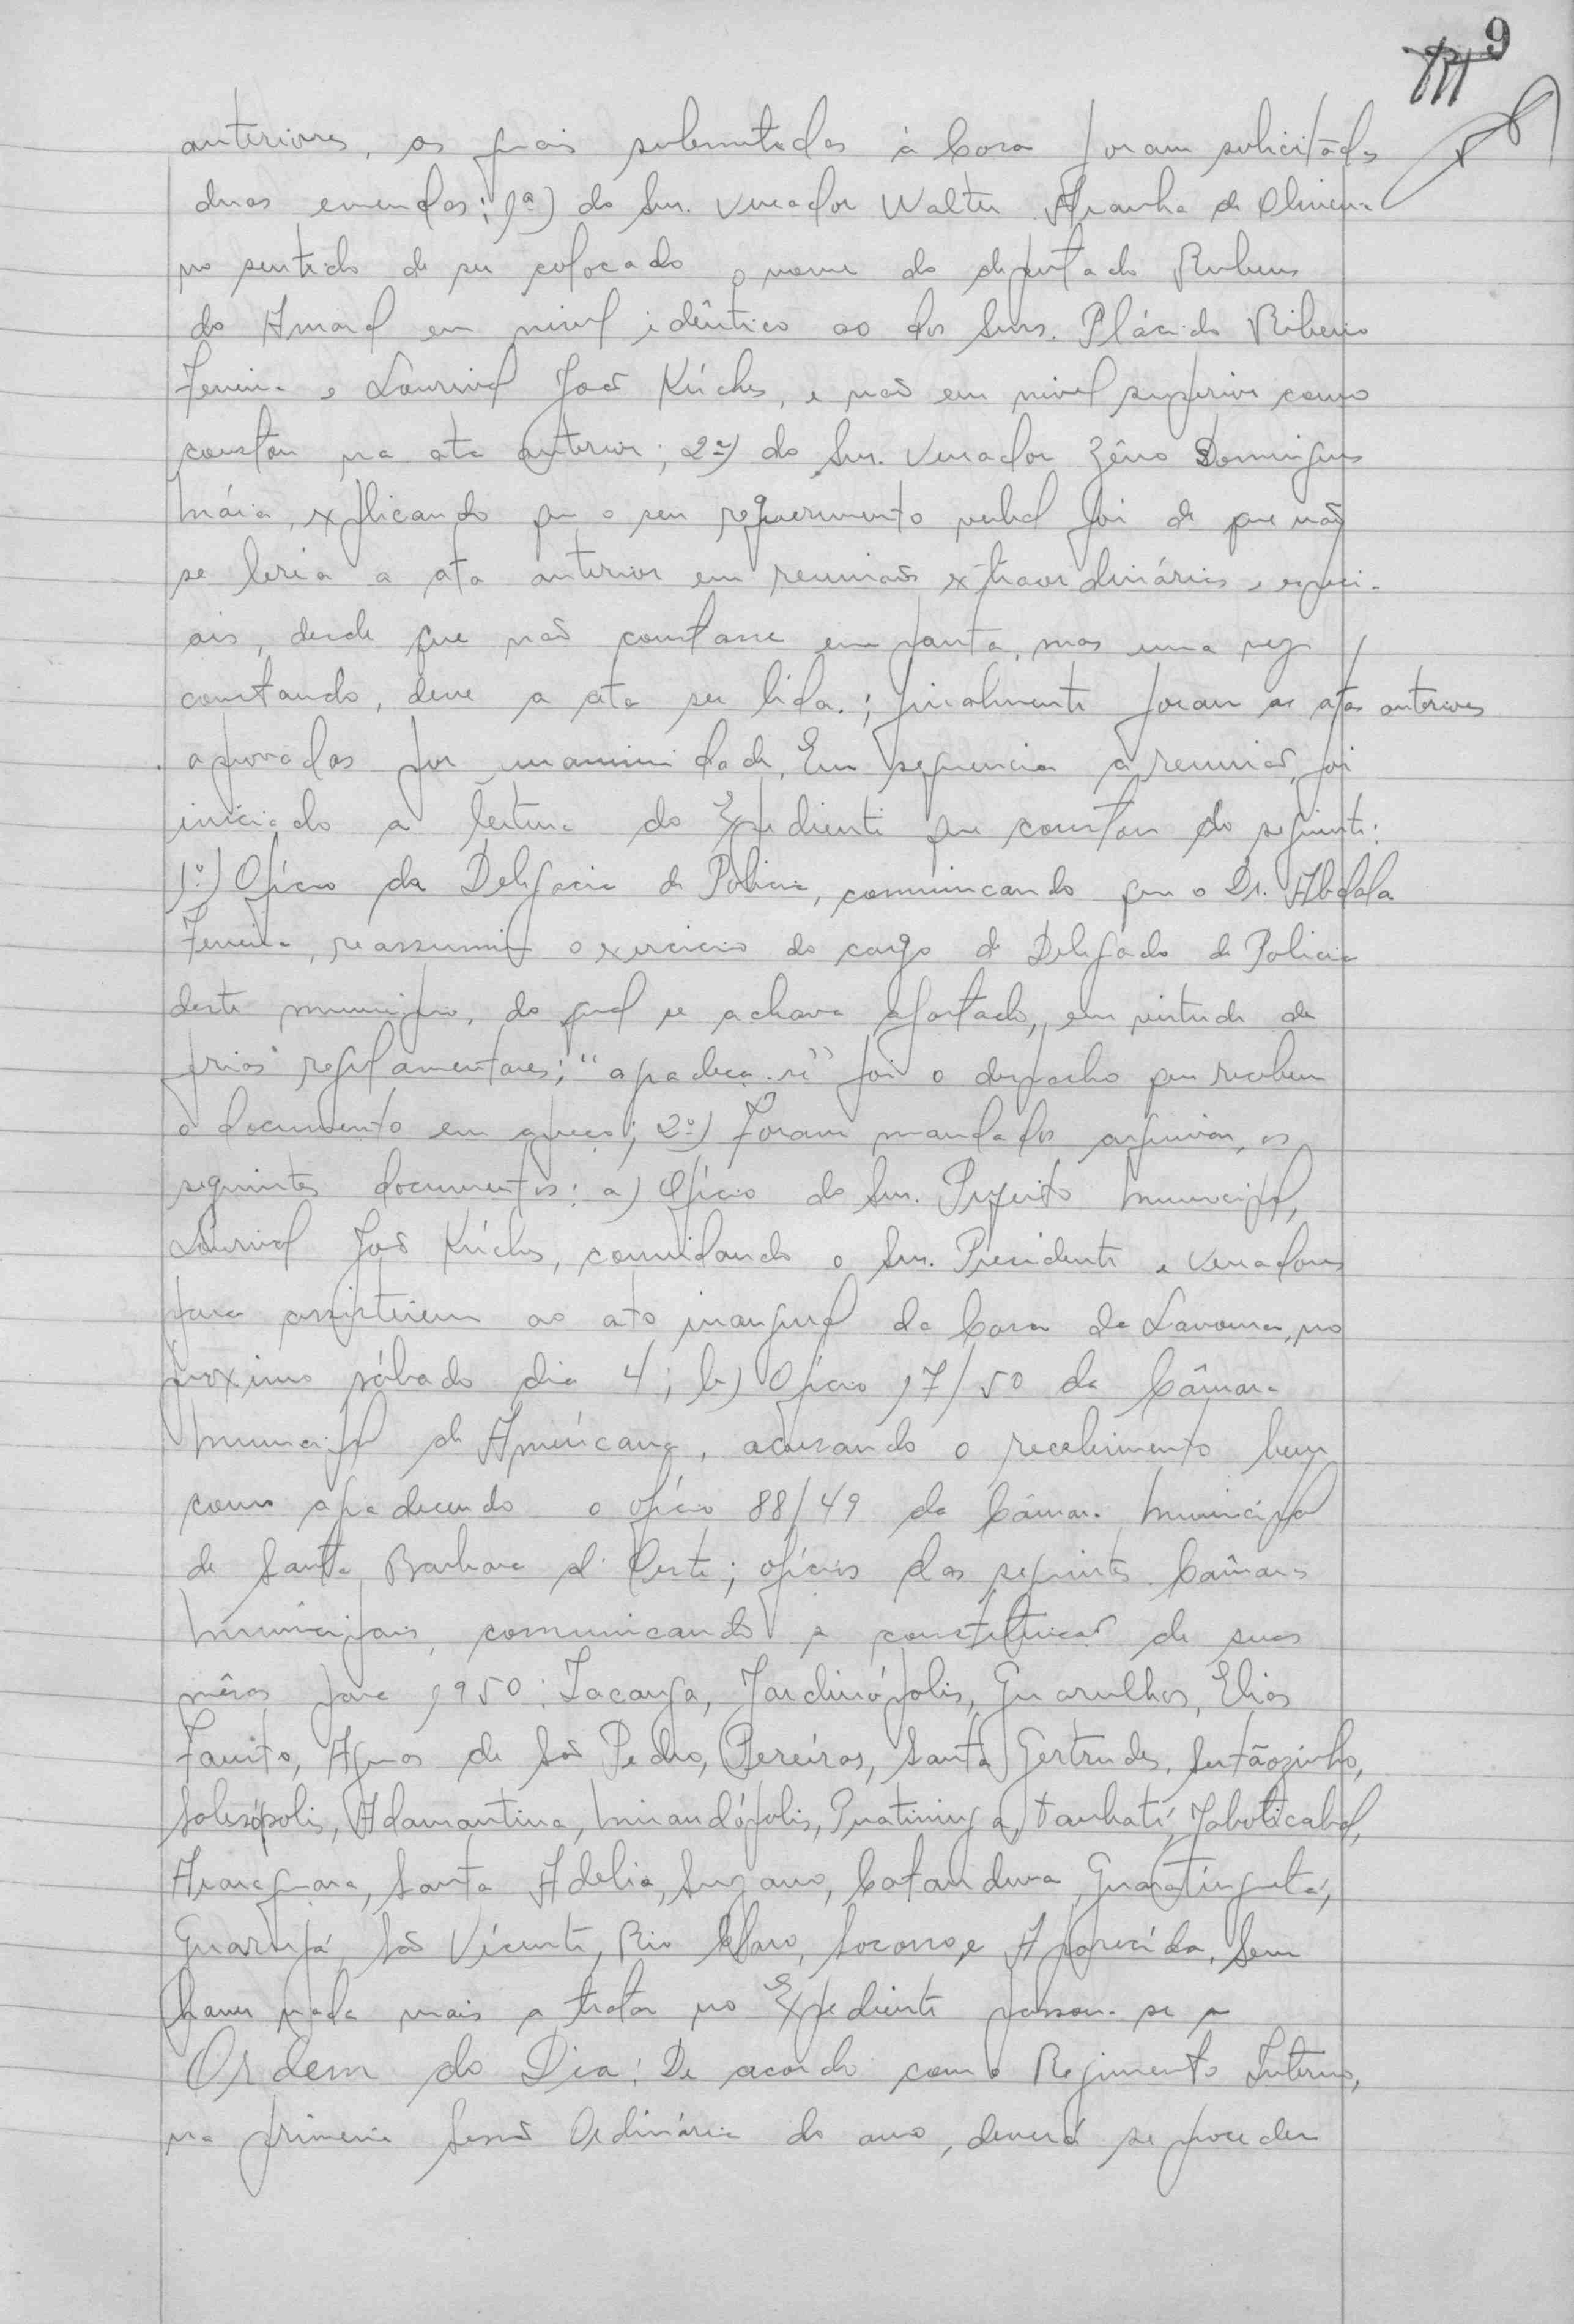 9
anteriores, as quais submetidas à Casa foram solicitadas
duas emendas: 1ª) do Snr. Vereador Walter Aranha de Oliveira
no sentido de ser colocado o nome do deputado Rubens
do Amaral em nivel idêntico ao dos Snrs. Plácido Ribeiro
Ferreira e Lourival João Kúchs, e não em nivel superior como
constou na ata anterior; 2ª) do Snr. Vereador Zêno Domingues
Máia, explicando que o seu requerimento verbal foi de que não
se leria a ata anterior em reuniões extraordinárias e especi-
ais, desde que não constasse em pauta, mas uma vez
constando, deve a ata ser lida.; finalmente foram as atas anteriores
aprovadas por unanimidade. Em sequencia a reunião, foi
iniciado a leitura do Expediente que constou do seguinte:
1º) Ofício da Delegacia de Policia, comunicando que o Dr. Abdala
Ferreira, reassumiu o exercicio do cargo de Delegado de Policia
deste municipio, do qual se achava afastado, em virtude de
férias regulamentares; "agradeça-se" foi o despacho que recebeu
o documento em apreço; 2º) Foram mandados arquivar, os
seguintes documentos: a) Ofício do Snr. Prefeito Municipal,
Lourival João Kúchs, convidando o Snr. Presidente e Vereadores
para assistirem ao ato inaugural da Casa da Lavoura, no
proximo sábado dia 4; b) Ofício 17/50 da Câmara
Municipal de Americana, acusando o recebimento bem
como agradecendo o ofício 88/49 da Câmara Municipal
de Santa Barbara d'Oeste; ofícios das seguintes Câmaras
Municipais, comunicando a constituição de suas
mêsas para 1950: Iacanga, Jardinópolis, Guarulhos, Elias
Fausto, Aguas de São Pedro, Pereiras, Santa Gertrudes, Sertãozinho,
Salesópolis, Adamantina, Mirandópolis, Piratininga, Taubaté, Jaboticabal,
Araraquara, Santa Adelia, Suzano, Catanduva, Guaratinguetá,
Guarujá, São Vicente, Rio Claro, Socorro, e Aparecida. Sem
haver nada mais a tratar no Expediente passou-se a
Ordem do Dia: De acordo com o Regimento Interno,
na primeira Sessão Ordinária do ano, deverá se proceder